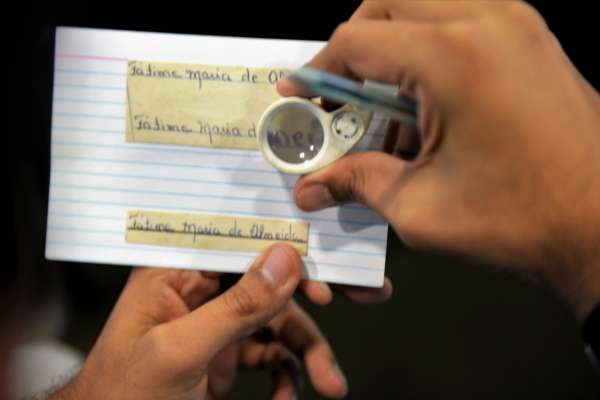 Fátima Maria de Al
Fátima Maria d mei
Fátima Maria de Almeida